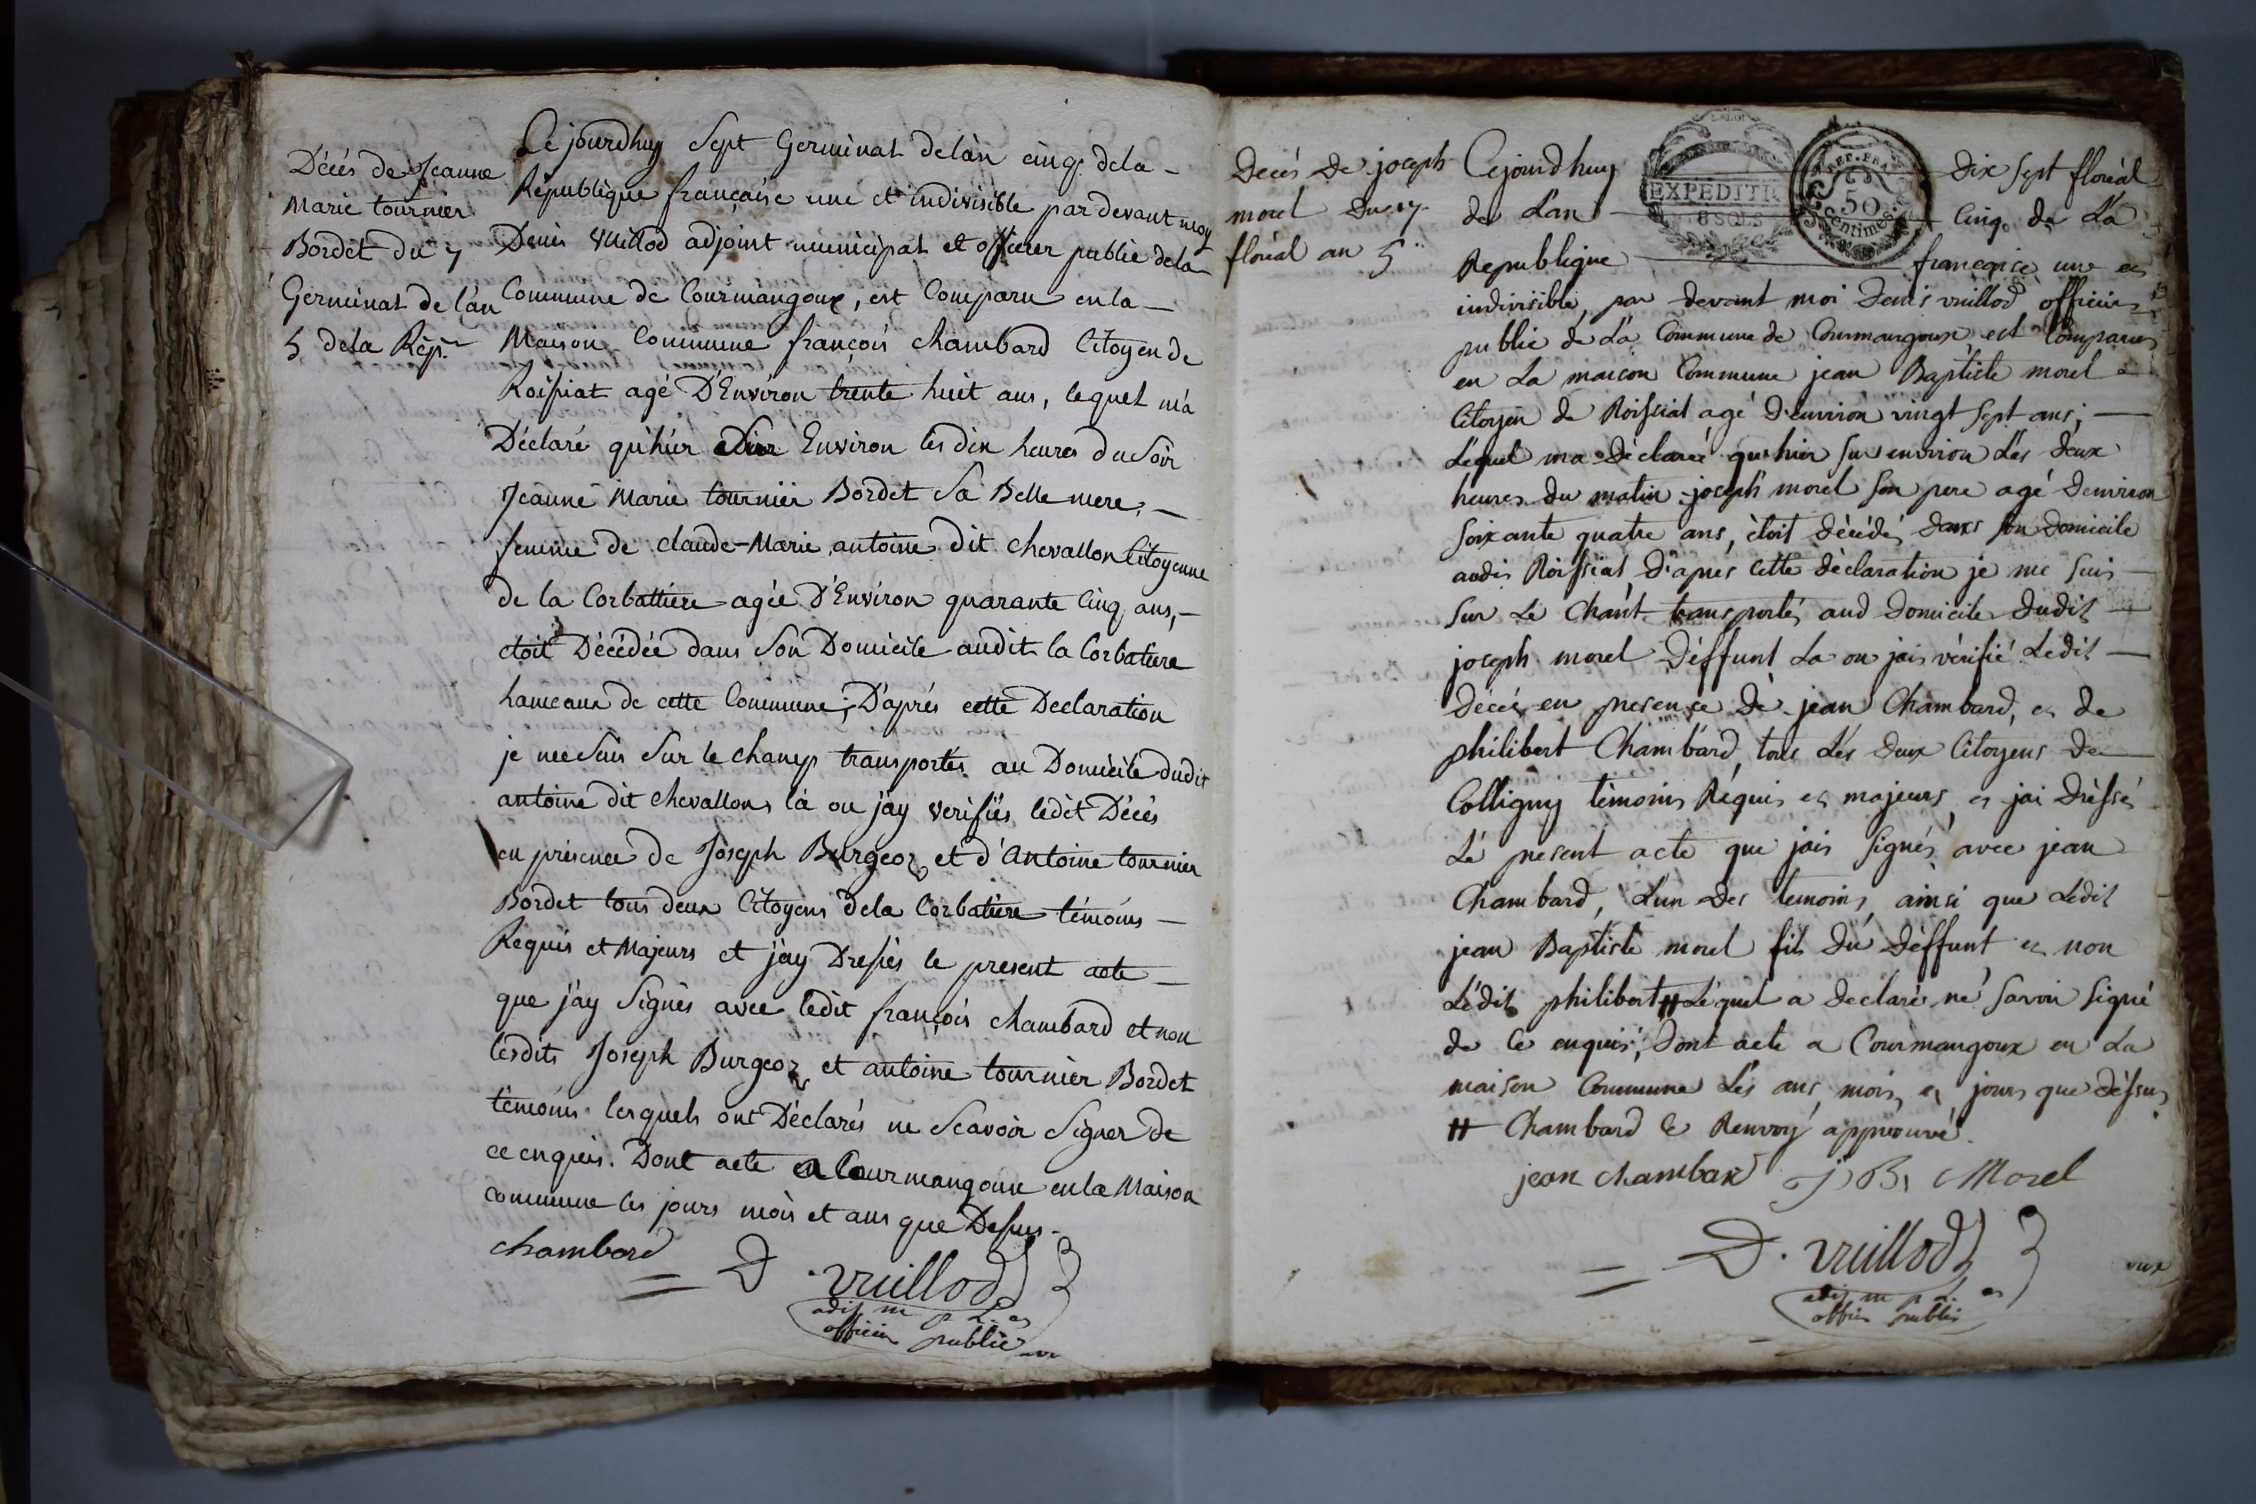 Décès de Jeanne
Marie tournier
Bordet du 7
Germinal de l'an
5 dela Rép.
Ce jourdhuy Sept Germinal delàn cinq dela
République française une et indivisible par devant moy
Denis Vuillod adjoint municipal et officier public dela
Commune de Courmangoux, est Comparu en la
Maison Commune françois Chambard Citoyen de
Roissiat agé D'Environ trente huit ans, lequel m'a
Déclaré qu'hier Environ les dix heures du Soir
Jeanne Marie tournier Bordet Sa Belle mere,
femme de claude-Marie antoine dit chevallon Citoyenne
de la Corbattiere agée D'Environ quarante Cinq ans,
etoit Décédée dans Son Domicile audit la Corbatiere
hameaux de cette Commune, D'aprés cette Declaration
je me Suis Sur le champ transportés au Domicile dudit
antoine dit chevallons là ou j'ay verifiés ledit Décés
en présence de Joseph Burgeoz et d'Antoine tournier
Bordet tous deux Citoyens dela Corbatiere témoins
Requis et Majeurs et j'ay Dressés le present acte
que j'ay Signès avec ledit françois chambard et non
lesdits Joseph Burgeoz et antoine tournier Bordet
témoins lesquels ont Déclarés ne Scavoir Signer de
ce enquis. Dont acte a Courmangoux en la Maison
commune les jours mois et ans que Dessus.
chambard
D. vuillod
adj m p l. et
officier public
Decès de joseph
morel du 17
floréal an 5
Cejourdhuy
EXPÉDITI
8 SOLS
REP. FRA
50
Centimes
dix sept floréal
de L'an
Cinq de La
Republique
francaise une et
indivisible, par devant moi denis vuillod officier
public de La Commune de Courmangoux, est Comparus
en La maison Commune jean Baptiste morel
Citoyen de Roissiat agé d'environ vingt Sept ans,
Léquel ma dèclarée quehier Sur environ Lés deux
heures du matin joseph morel Son pere agé denviron
Soixante quatre ans, ètoit dècèdé dans Son domicile
audit Roissiat d'apres Cette dèclaration je me Suis
Sur Le Chant transportés aud domicile dudit
joseph morel dèffunt La ou jais vèrifié Ledit
dècès en presence de jean Chambard, et de
philibert Chambard, tous Lés deux Citoyens de
Colligny tèmoins Réquis et majeurs, et jai drèssés
Lé present acte que jais Signés avec jean
Chambard, L'un des temoins ainsi que Ledit
jean Baptiste morel fils du dèffunt et non
Lédit philibert # Léquel a declaré né Savoir Signé
de Ce enquis, dont acte a Courmangoux en La
maison Commune Lés ans, mois, et jours que dèssus
# Chambard & Renvoy approuvé.
jean chambard J B Morel
D. vuillod
adj m p l. et
officier public